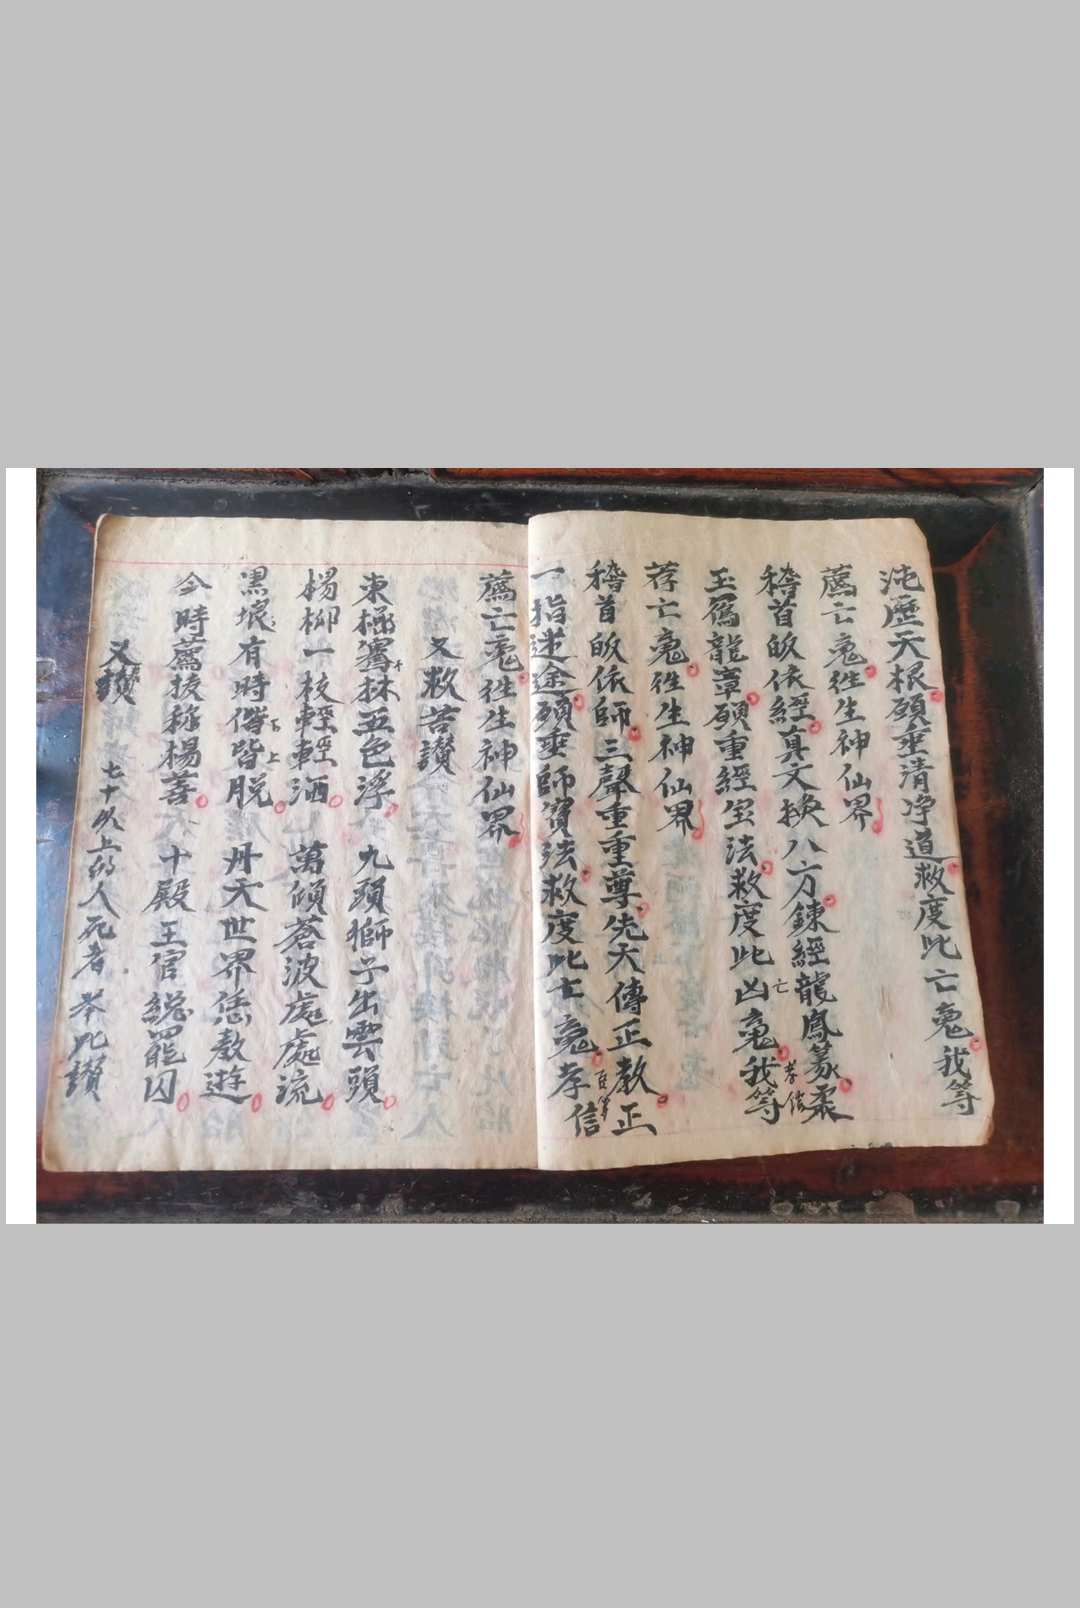 沌歷天根願垂清净道救度此亡䰟我等
薦亡䰟徃生神仙界
稽首皈依經真文換八方鍊經龍鳳篆孝信
玉爲龍章願重經宝法救度此凶亡䰟我等
荐亡䰟徃生神仙界
稽首皈依師三聲重重尊先天傳正教正
一指迷途願垂師寳法救度此亡䰟孝信
薦亡䰟徃生神仙界
又救苦讃
東極騫林五色浮九頭獅子出雲頭
楊柳一枝輕輕洒萬傾蒼波處處流
黑壞有時皆脱丹天世界恁教遊
今時薦拔称楊善十殿王官緫罷囚
又讃七十以上的人死者举此讃